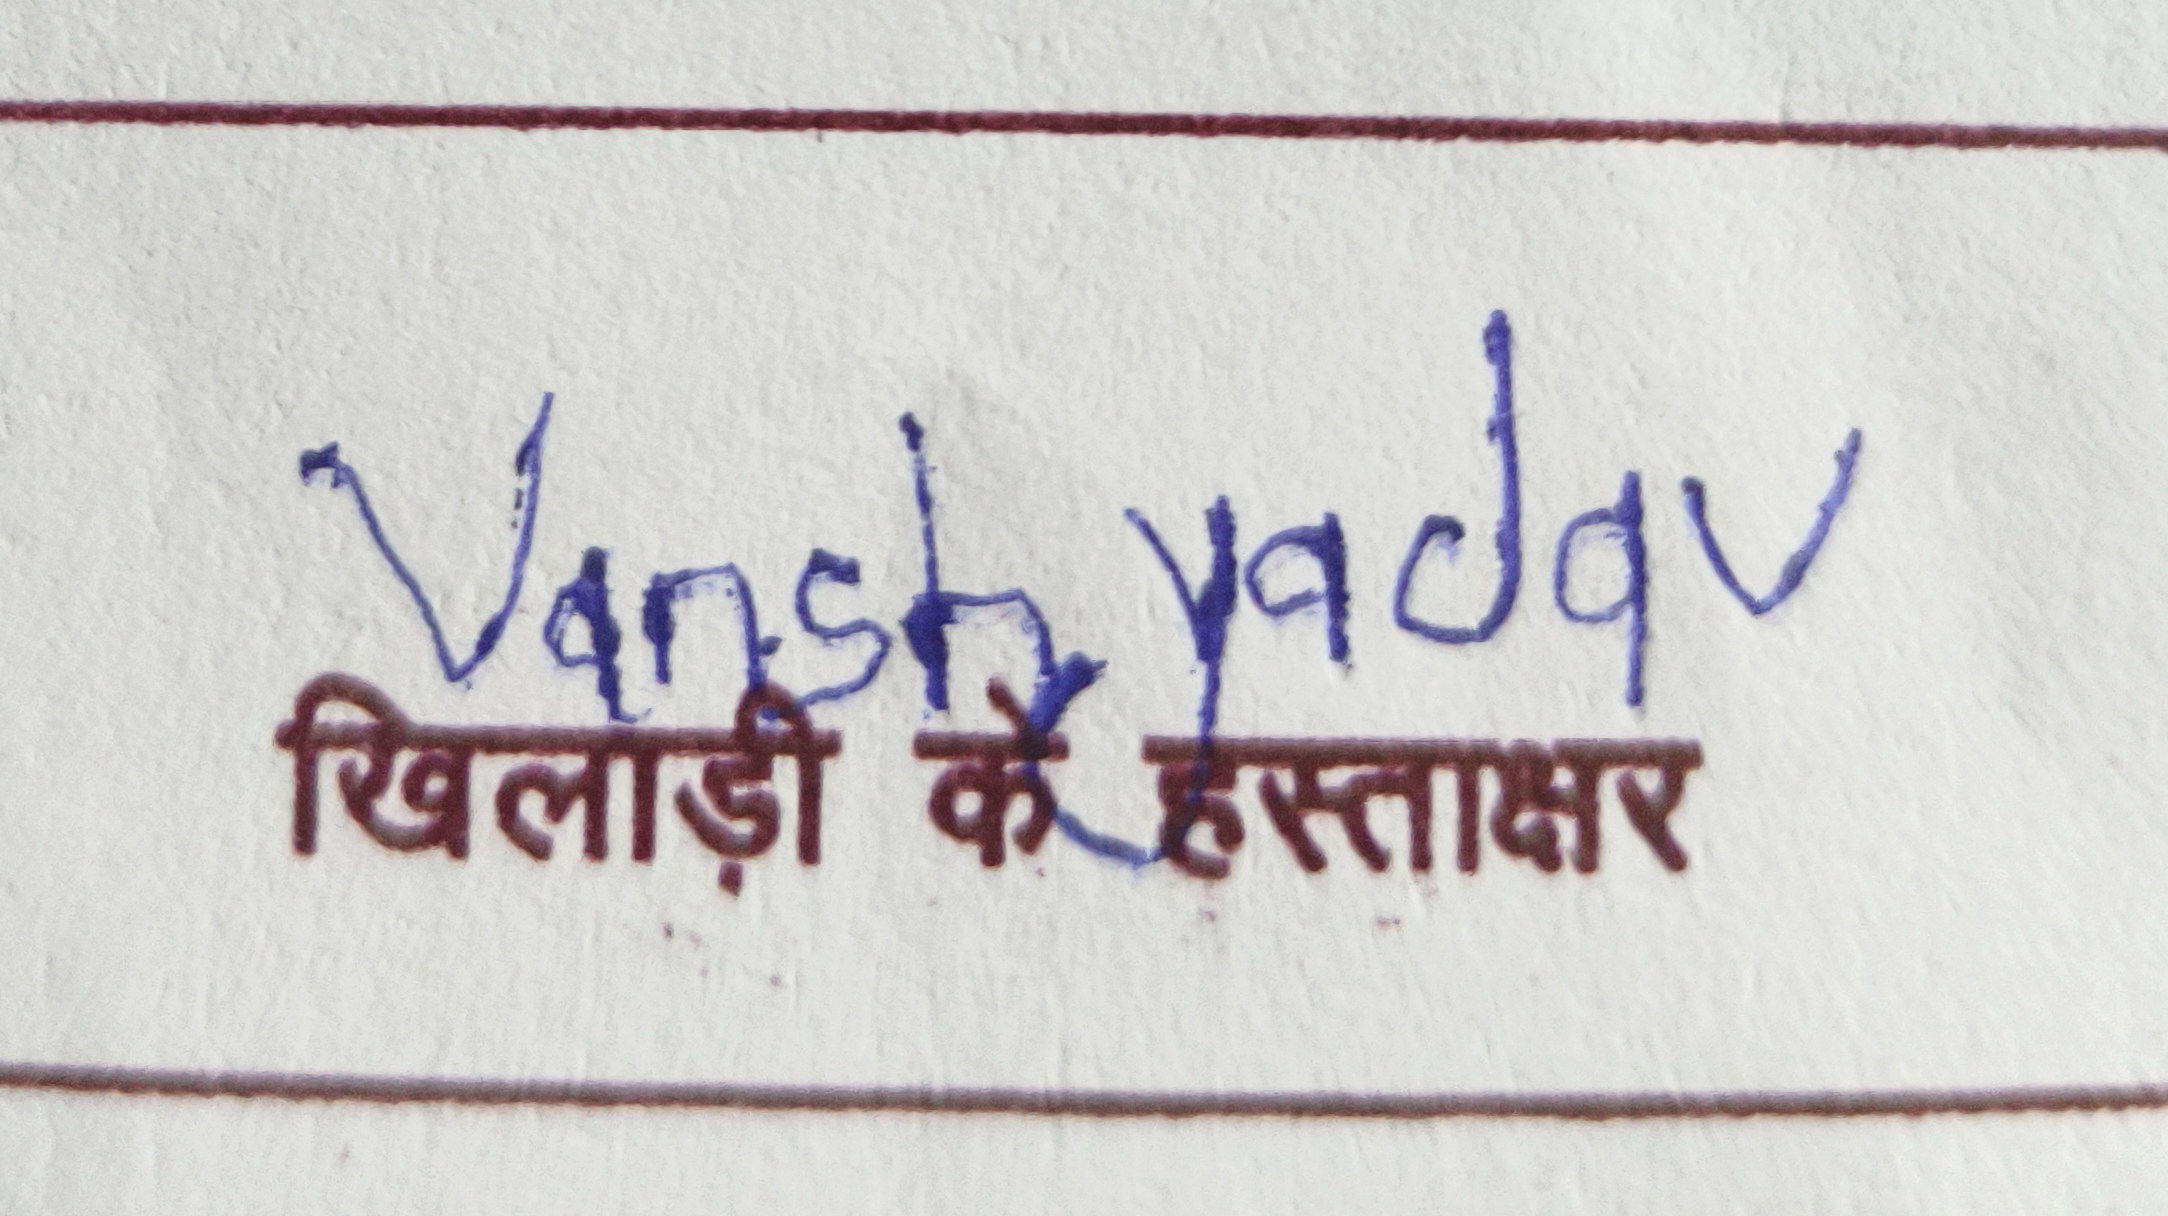 Vansh yadav
खिलाड़ी के हस्ताक्षर